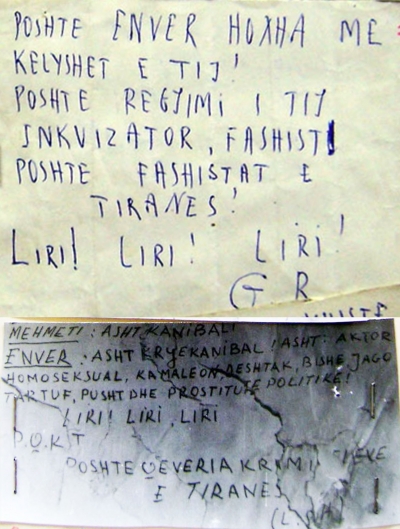 POSHTE ENVER HOXHA ME
KELYSHET E TIJ!
POSHTE REGJIMI I TIJ
INKVIZATOR, FASHIST!
POSHTE FASHISTAT E
TIRANES!
LIRI! LIRI! LIRI!
G R
MEHMETI: ASHT KANIBAL!
ENVER: ASHT KRYEKANIBAL! ASHT: AKTOR
HOMOSEKSUAL, KAMALEON, DESHTAK, BISHE, JAGO
TARTUF, PUSHT DHE PROSTITUTE POLITIKE!
LIRI! LIRI, LIRI
POSHTE QEVERIA
E TIRANES